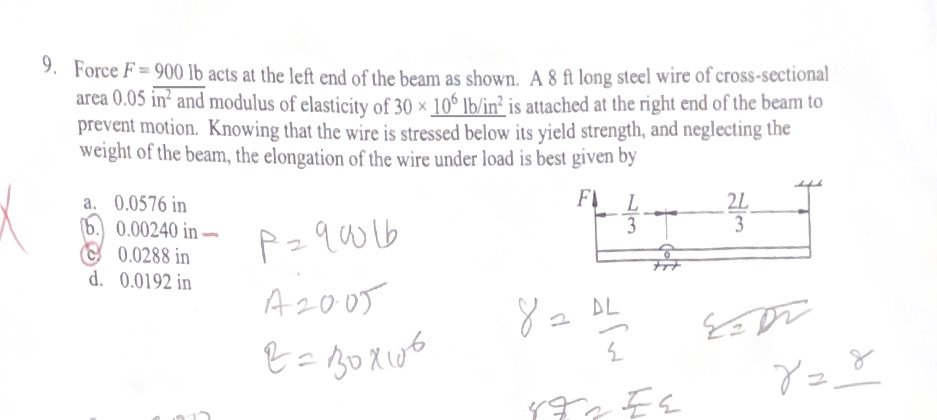 9. Force F = 900 lb acts at the left end of the beam as shown. A 8 ft long steel wire of cross-sectional
area 0.05 in² and modulus of elasticity of 30 × 10⁶ lb/in² is attached at the right end of the beam to
prevent motion. Knowing that the wire is stressed below its yield strength, and neglecting the
weight of the beam, the elongation of the wire under load is best given by
a. 0.0576 in
b. 0.00240 in
c. 0.0288 in
d. 0.0192 in
F L/3 2L/3
P = 900 lb
A = 0.05
E = 30 × 10⁶